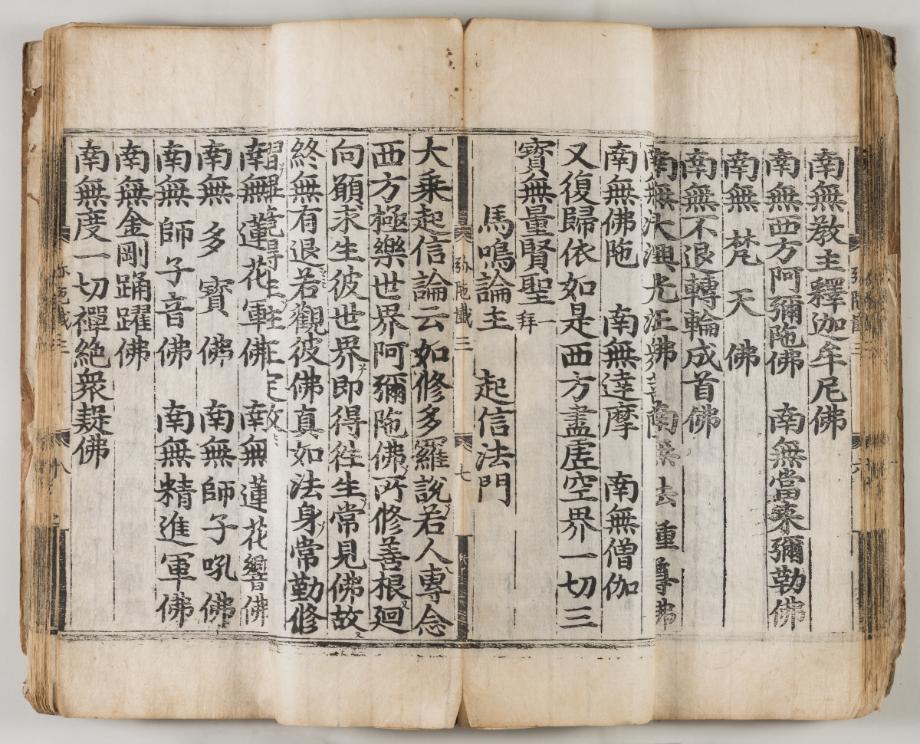 弥陁懺三 六
南無教主釋迦牟尼佛
南無西方阿彌陁佛 南無當來彌勒佛
南無梵天佛
南無不退轉輪成首佛
南無大興光王佛 南無法種尊佛
南無佛陁 南無達摩 南無僧伽
又復歸依如是西方盡虛空界一切三
寶無量賢聖 一拜
馬鳴論主 起信法門
弥陁懺三 七
大乘起信論云如修多羅說若人專念
西方極樂世界阿彌陁佛所修善根廻
向願求生彼世界即得徃生常見佛故
終無有退若觀彼佛真如法身常勤修
習畢竟得生住正定故
南無蓮花軍佛 南無蓮花響佛
南無多寶佛 南無師子吼佛
南無師子音佛 南無精進軍佛
南無金剛踊躍佛
南無度一切禪絶衆疑佛
弥陁懺三 八